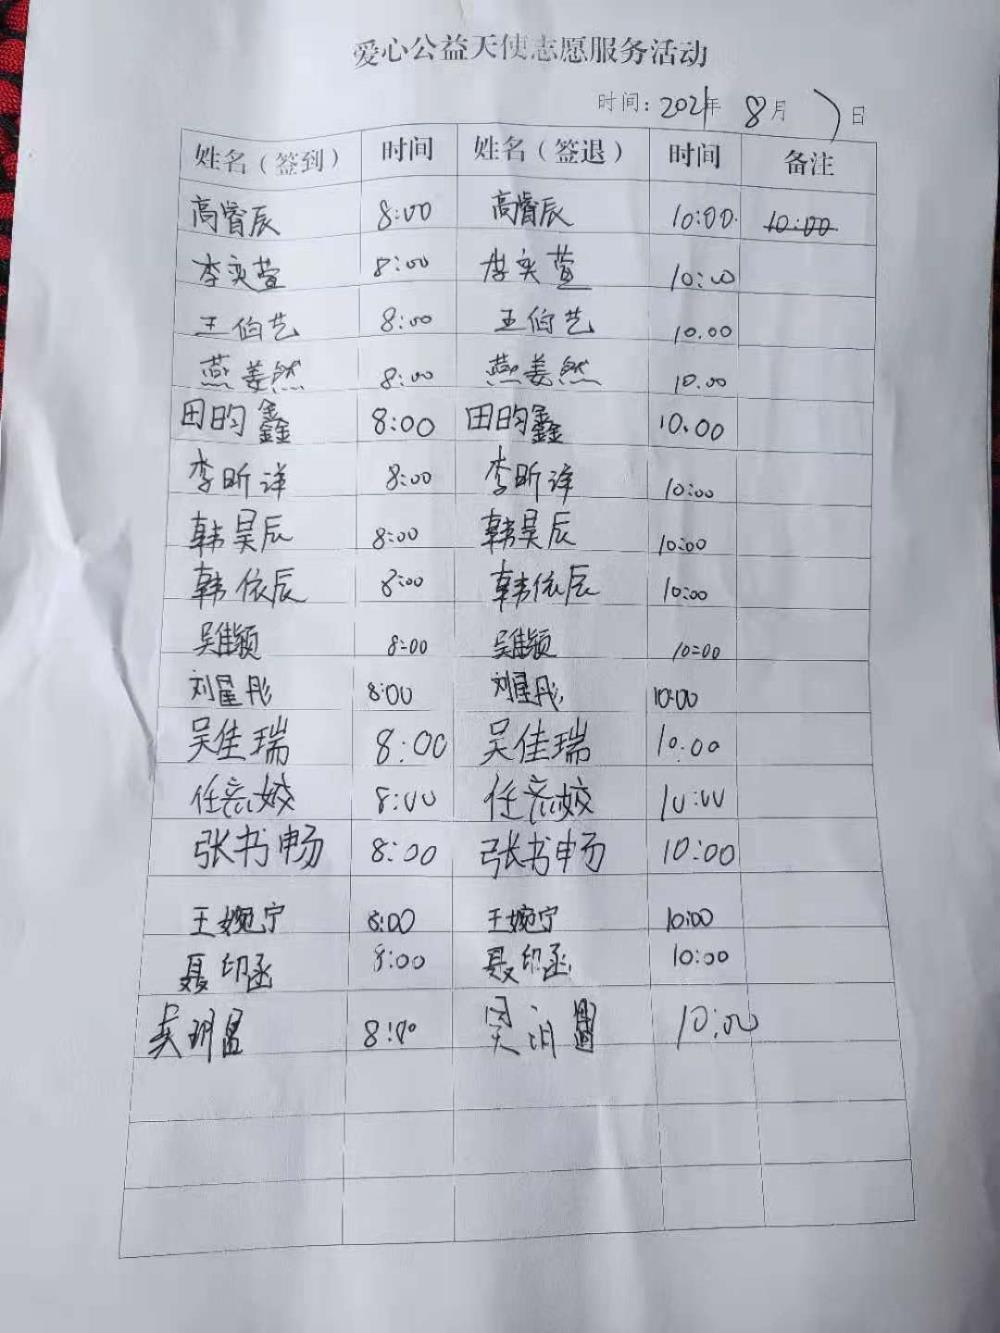 爱心公益天使志愿服务活动
时间：2021年 8月 7日
姓名（签到） 时间 姓名（签退） 时间 备注
高睿辰 8:00 高睿辰 10:00 10:00
李奕萱 8:00 李奕萱 10:00
王伯艺 8:00 王伯艺 10.00
燕姜然 8:00 燕姜然 10.00
田昀鑫 8:00 田昀鑫 10.00
李昕洋 8:00 李昕洋 10:00
韩昊辰 8:00 韩昊辰 10:00
韩依辰 8:00 韩依辰 10:00
吴佳颖 8:00 吴佳颖 10:00
刘星彤 8:00 刘星彤 10:00
吴佳瑞 8:00 吴佳瑞 10:00
任 姣 8:00 任 姣 10:00
张书畅 8:00 张书畅 10:00
王婉宁 8:00 王婉宁 10:00
聂印函 8:00 聂印函 10:00
吴 8:00 吴 10:00